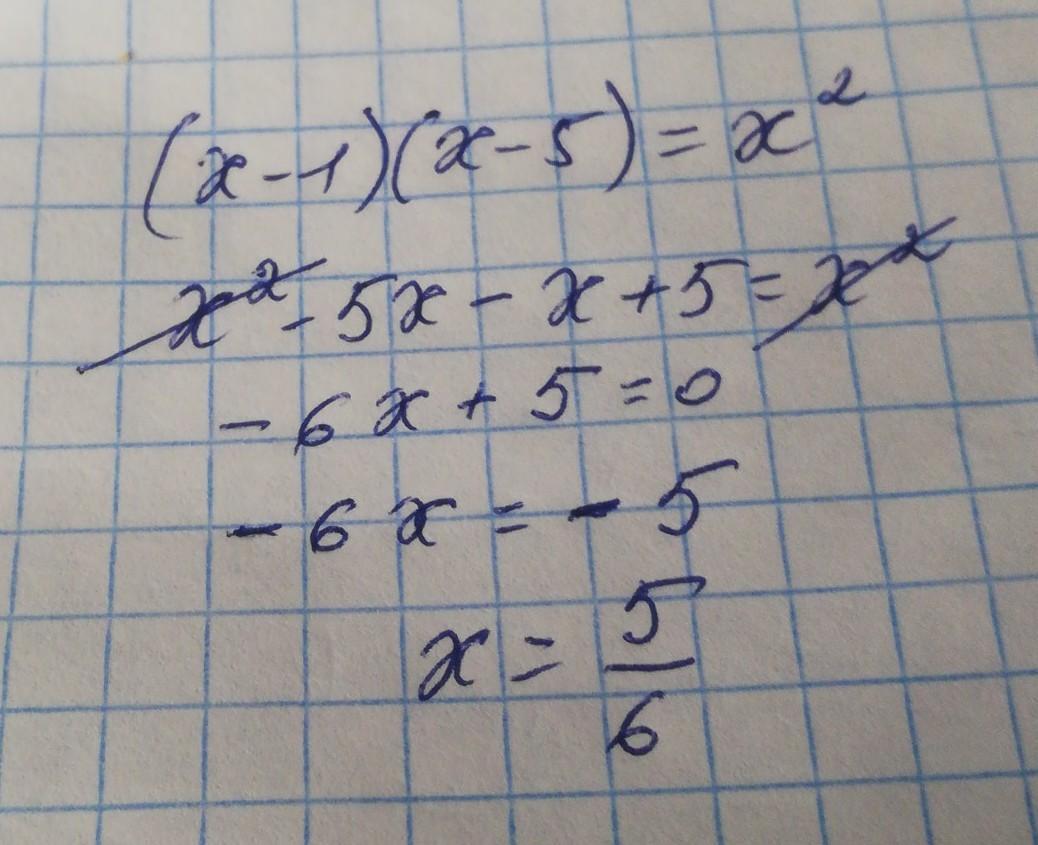 (x-1)(x-5)=x²
x²-5x-x+5=x²
-6x+5=0
-6x=-5
x=5/6